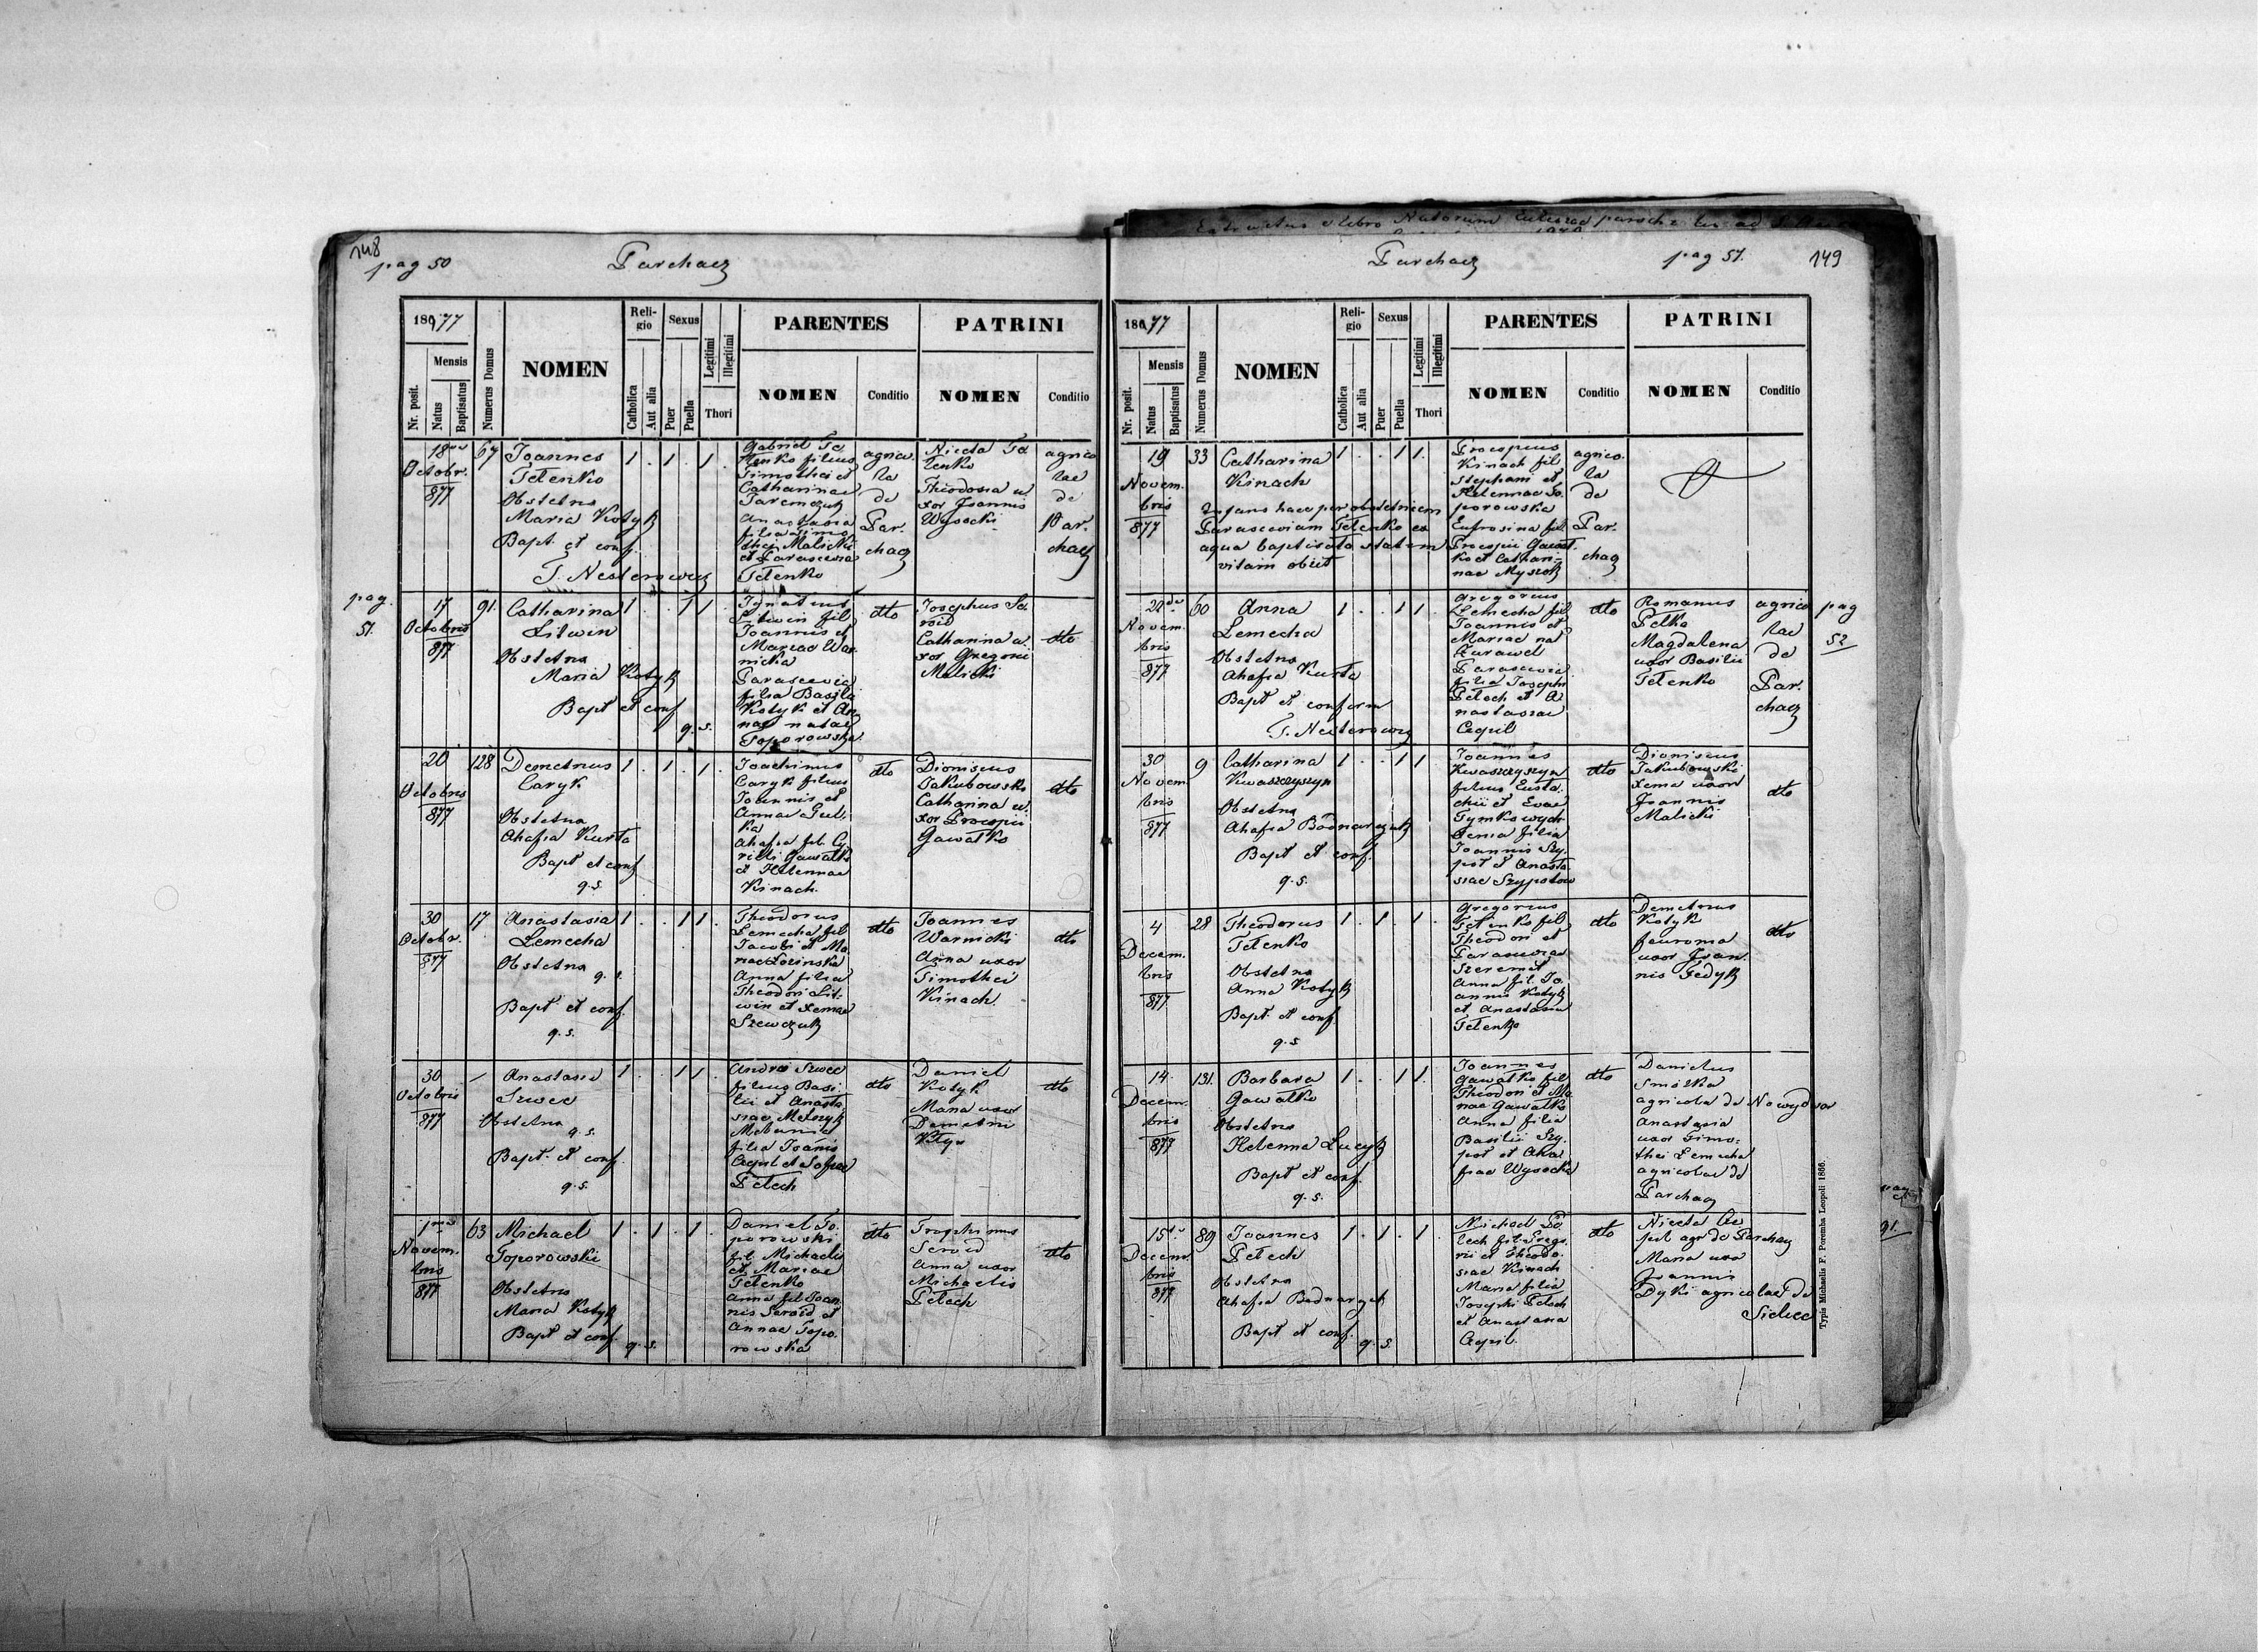 148
pag 50
Parchacz
1877
Nr. posit.
Mensis
Natus
Baptisatus
Numerus Domus
NOMEN
Religio
Catholica
Aut alia
Sexus
Puer
Puella
Legitimi
Illegitimi
Thori
PARENTES
NOMEN
Conditio
PATRINI
NOMEN
Conditio
18va
Octobr.
877
67
Joannes
Tetenko
Obstetrix
Maria Kotyk
Bapt. et conf.
T. Nesterowicz
1 . 1 . 1 .
Gabriel Te
tenko filius
Timothei et
Catharinae
Jaremczuk
Anastasia
filia Timo
thei Malicki
et Parascevia
Tetenko
agrico
la
de
Par.
chacz
Niceta Te
tenko
Theodosia u
xor Joannis
Wysocki
agrico
lae
de
Par.
chacz
pag.
51.
17
Octobris
877
91.
Catharina
Litwin
Obstetrix
Maria Kotyk
Bapt et conf
q. s.
1 . . 1 1 .
Ignatius
Litwin fil
Joannis et
Mariae War
nicka
Parascevia
filia Basilii
Kotyk et An
nae natae
Toporowska
dto
Josephus Se
roid
Catharina u
xor Gregorii
Malicki
dto
20
Octobris
877
128
Demetrius
Caryk
Obstetrix
Ahafia Kurta
Bapt et conf
q. s.
1 . 1 . 1 .
Joachimus
Caryk filius
Joannis et
Annae Hul
ka
Ahafia fil. Cy
rilli Gawałko
et Helennae
Kinach.
dto
Dionisius
Jakubowski
Catharina u
xor Procopii
Gawałko
dto
30
Octobr.
877
17
Anastasia
Lemecha
Obstetrix
q. s.
Bapt et conf.
q. s.
1 . . 1 1 .
Theodorus
Lemecha fil
Jacobi et Ma
riae Łozinska
Anna filia
Theodori Lit
win et Xeniae
Szewczuk
dto
Joannes
Warnicki
Anna uxor
Timothei
Kinach
dto
30
Octobris
877
Anastasia
Szwec
Obstetrix
q. s.
Bapt. et conf.
q. s.
1 . . 1 1 .
Andreas Szwec
filius Basi
lii et Anasta
siae
Melania
filia Joannis
Cepil et Sofiae
Pelech
dto
Daniel
Kotyk
Maria uxor
Demetrii
dto
1ma
Novem.
bris
877
63
Michael
Toporowski
Obstetrix
Maria Kotyk
Bapt et conf.
q. s.
1 . 1 . 1 .
Daniel To.
porowski
fil. Michaelis
et Mariae
Tetenko
Anna fil Joan
nis Seroid et
Annae Topo.
rowska
dto
Trophimus
Seroid
Anna uxor
Michaelis
Pelech
dto
Parchacz
pag 51.
149
1877
Nr. posit.
Mensis
Natus
Baptisatus
Numerus Domus
NOMEN
Religio
Catholica
Aut alia
Sexus
Puer
Puella
Legitimi
Illegitimi
Thori
PARENTES
NOMEN
Conditio
PATRINI
NOMEN
Conditio
19
Novem.
bris
877
33
Catharina
Kinach
Infans haec per obstetricem
Parasceviam Tetenko ex
aqua baptisata statim
vitam obiit
1 . . 1 1 .
Procopius
Kinach fil
Stephani et
Helennae To.
porowska
Eufrosina fil
Procopii Gawał.
ko et Cathari
nae Myszok
agrico.
la
de
Par.
chacz
22da
Novem.
bris
877
60
Anna
Lemecha
Obstetrix
Ahafia Kurta
Bapt et conform
T. Nesterowicz
1 . . 1 1 .
Gregorius
Lemecha fil
Joannis et
Mariae na
Zurawel
Parascevia
filia Josephi
Pelech et A
nastasiae
Cepil
dto
Romanus
Pelka
Magdalena
uxor Basilii
Tetenko
agrico
lae
de
Par.
chacz
pag
52
30
Novem
bris
877
9
Catharina
Kwaszczyszyn
Obstetrix
Ahafia Bodnarczuk
Bapt et conf.
q. s.
1 . . 1 1
Joannes
Kwaszczyszyn
filius Eusta.
chii et Evae
Tymkowych
Xenia filia
Joannis Szy.
pot et Anasta
siae Szypotow
dto
Dionisius
Jakubowski
Xenia uxor
Joannis
Malicki
dto
4
Decem.
bris
877
28
Theodorus
Tetenko
Obstetrix
Anna Kotyk
Bapt. et conf.
q. s
1 . 1 . 1 .
Gregorius
Tetenko fil
Theodori et
Parasceviae
Szeremet
Anna fil. Jo.
annis Kotyk
et Anastasia
Tetenko
dto
Demetrius
Kotyk
uxor Joan
nis Fedyk
dto
14.
Decem.
bris
877
131.
Barbara
Gawałko
Obstetrix
Helenna Lucyk
Bapt et conf.
q. s.
1 . . 1 1 .
Joannes
Gawałko fil
Theodori et Ma
riae Gawałko
Anna filia
Basilii Szy.
pot et Aha
fiae Wysocka
dto
Danielus
Smitka
agricola de Nowydwor
Anastasia
uxor Timo.
thei Lemecha
agricolae de
Parchacz
15ta
Decem.
bris
877
89
Joannes
Pelech
Obstetrix
Ahafia Bodnarczuk
Bapt et conf.
q. s.
1 . 1 . 1 .
Michael Pe
lech fil. Grego
rii et Theodo.
siae Kinach
Maria filia
Josephi Pelech
et Anastasia
Cepil.
dto
Niceta Ce
pil agr de Parchacz
Maria uxor
Joannis
Dyki agricolae de
Sielec
Typis Michaelis F. Poremba Leopoli 1866.
91.